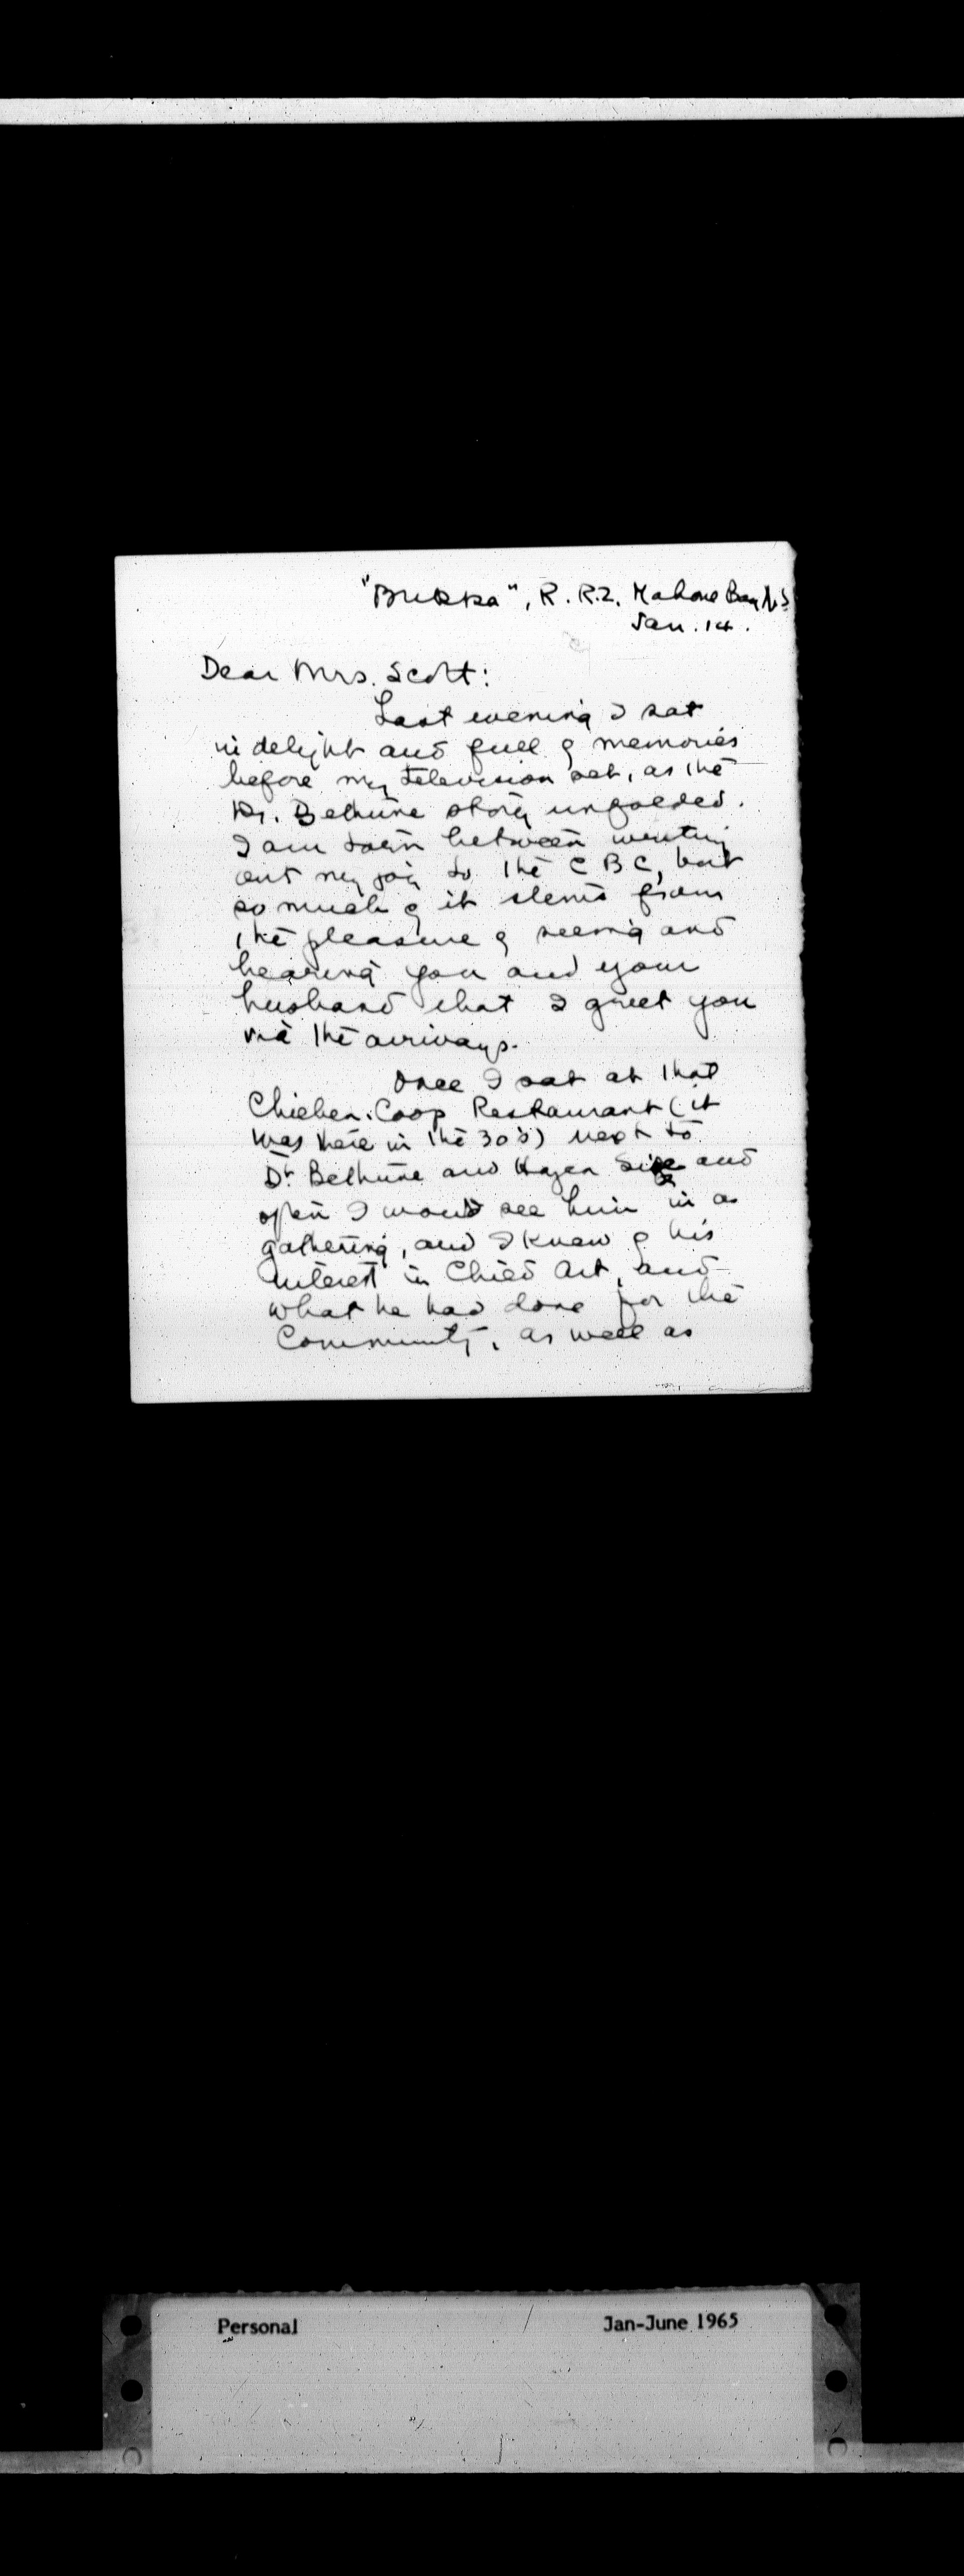 "Bukka", R.R.2. Mahone Bay N.S
Jan. 14.
Dear Mrs. Scott:
Last evening I sat
in delight and full of memories
before my television set, as the
Dr. Bethune story unfolded.
I am torn between writing
out my joy to the CBC, but
so much of it stems from
the pleasure of seeing and
hearing you and your
husband that I greet you
via the airways.
Once I sat at that
Chicken-Coop Restaurant (it
was there in the 30's) next to
Dr Bethune and Hazen Size and
often I would see him in a
gathering, and I knew of his
interest in Child Art, and
what he had done for the
Community, as well as
Personal
Jan-June 1965